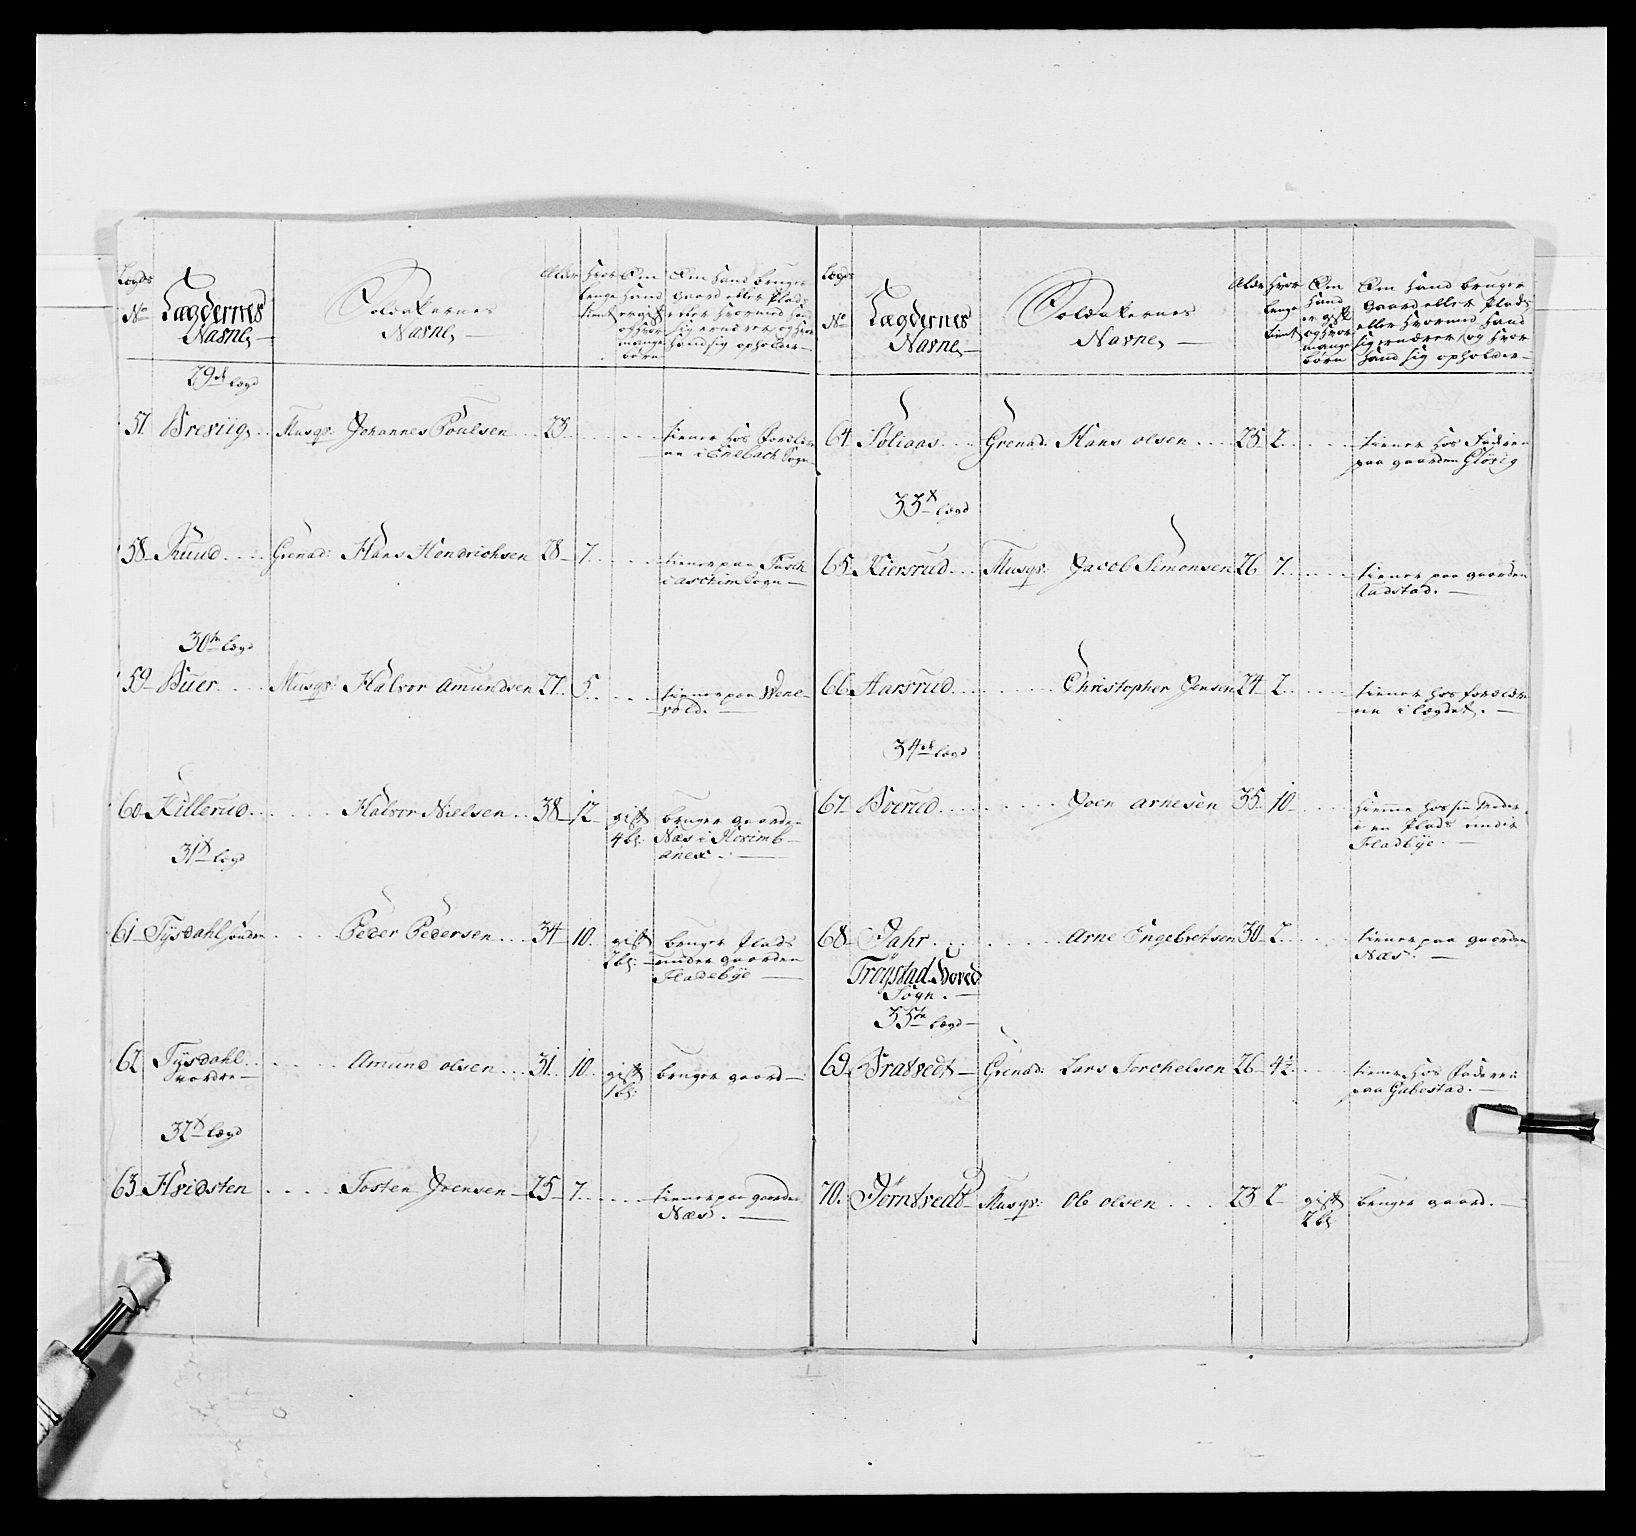 Lægds
No
Lægdernes
Navne,
Soldaternes
Navne,
Alder
Hvor
lenge
tient
Om
hand
er gift
og hvor
mange
børn
Om hand bruger
Gaard eller Plads
eller hvormed han
sig ernærer, og hvor
hand sig opholder
29de lægd
57 Brevig, Musqr: Johannes Poulsen 23 tiener hos Foreldre
ne i Enebach Sogn
58 Ruud Grenad: Hans Hendrichsen 28 7 tiener paa
i Aschim Sogn
30te lægd
59 Buer Musqr: Halvor Amundsen 27 5 tiener paa
60 Killerud Halvor Nielsen 38 12 gift bruger gaarden
4 b: Næs i
anex
31te lægd
61 Tysdahl søndre Peder Pedersen 34 10 gift bruger Plads
2 b: under gaarden
Fladebye
62 Tysdahl Amund olsen 31 10 gift bruger gaard
nordre 1 b:
32te lægd
63 Hvidsten Tosten Joensen 25 7 tiener paa gaarden
Næs.
Lægds
No
Lægdernes
Navne,
Soldaternes
Navne,
Alder
Hvor
lenge
tient
Om
hand
er gift
og hvor
mange
børn
Om hand bruger
Gaard eller Plads
eller hvormed hand
sig ernærer, og hvor
hand sig opholder
64 Soliaas Grenad: Hans olsen 25 2 tiener hos Faderen
paa gaarden
33te lægd
65 Kiersrud Musqr: Jacob Simonsen 26 7 tiener paa gaarden
Rudstad.
66 Aarsrud Christopher Jensen 24 2 tiener hos foreldre
ne i lægdet.
34de lægd
67 Boerud Joen Arnesen 35 10 hiemme hos sin Moder
i en Plads under
Fladbye.
68 Jahr Arne Engebretsen 30 2 tiener paa gaarden
Næs.
Trøgstad Hoved
Sogn.
35te lægd
69 Bratvedt Grenad: Lars Torchelsen 26 4½ tiener hos Faderen
paa Gubestad.
70 Jørntvedt Musqr: Ole olsen 23 2 gift bruger gaard.
2 b: